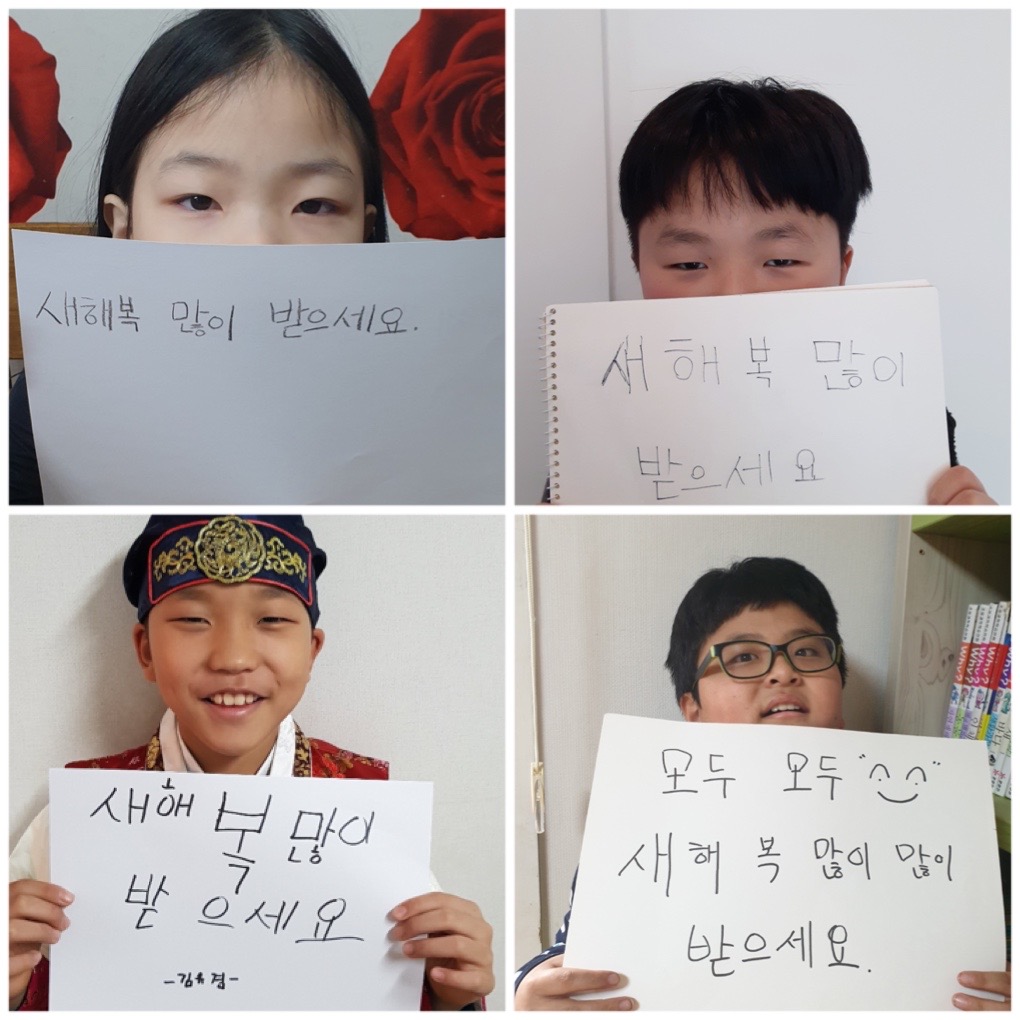 새해복 많이 받으세요.
새해 복 많이
받으세요
새해 복 많이
받으세요
-김유겸-
모두 모두 ^^
새해 복 많이 많이
받으세요.
Why?
Why?
Why?